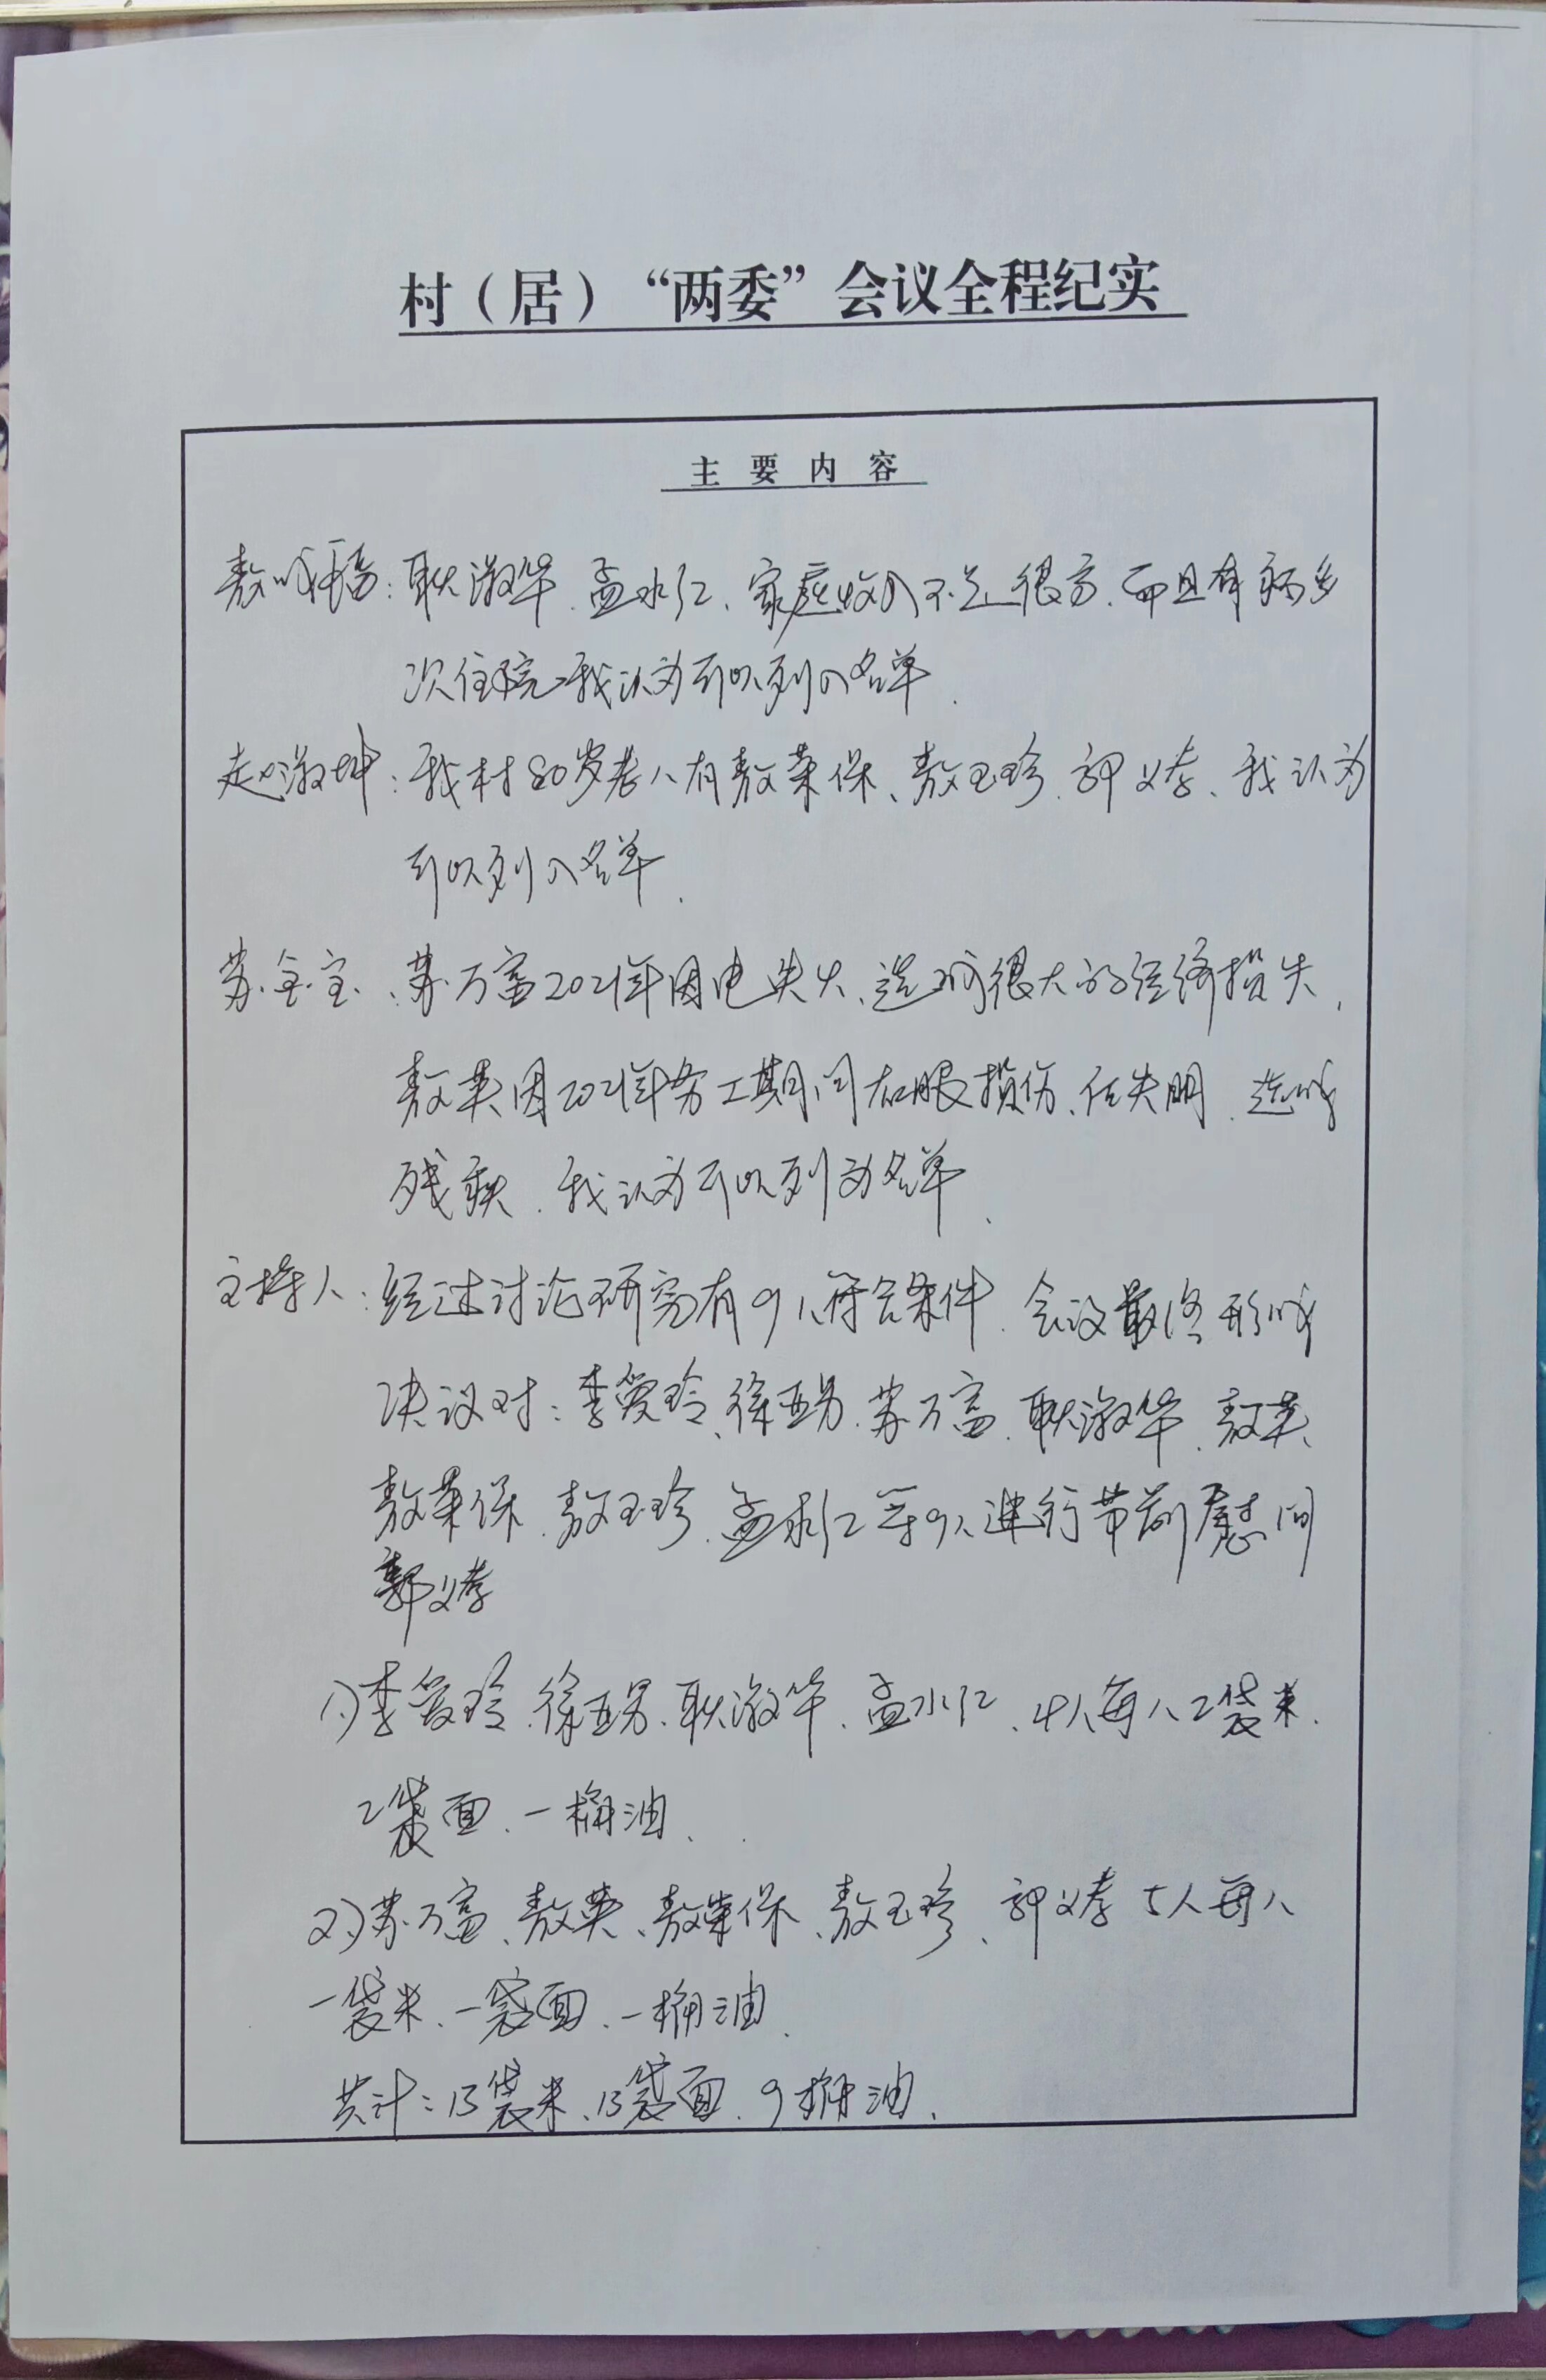 村（居）“两委”会议全程纪实
主要内容
敖成瑞：耿淑华、孟永仁、家庭收入不是很高、而且有病多
次住院，我认为可以列入名单、
赵淑坤：我村80岁老人有敖荣保、敖玉珍、郭义孝、我认为
可以列入名单、
苏金宝、苏万富2021年因电失火、造成很大的经济损失、
敖英因2021年务工期间右眼损伤、住失明、造成
残疾、我认为可以列为名单、
主持人：经过讨论研究有9人符合条件、会议最终形成
决议对：李爱玲、徐亚男、苏万富、耿淑华、敖英、
敖荣保、敖玉珍、孟永仁等9人进行节前慰问
郭义孝
1)李爱玲、徐亚男、耿淑华、孟永仁、4人每人2袋米、
2袋面、一桶油、
2)苏万富、敖英、敖荣保、敖玉珍、郭义孝5人每人
一袋米、一袋面、一桶油、
共计：13袋米、13袋面、9桶油、